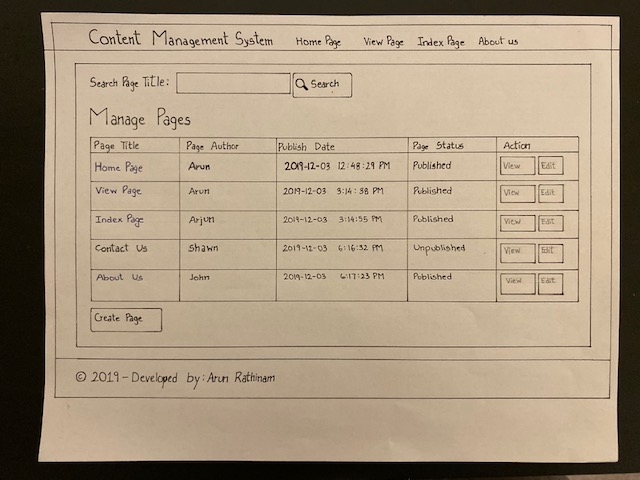 Content Management System Home Page View Page Index Page About us
Search Page Title: Search
Manage Pages
Page Title Page Author Publish Date Page Status Action
Home Page Arun 2019-12-03 12:48:29 PM Published View Edit
View Page Arun 2019-12-03 3:14:38 PM Published View Edit
Index Page Arjun 2019-12-03 3:14:55 PM Published View Edit
Contact Us Shawn 2019-12-03 6:16:32 PM Unpublished View Edit
About Us John 2019-12-03 6:17:23 PM Published View Edit
Create Page
© 2019 - Developed by: Arun Rathinam